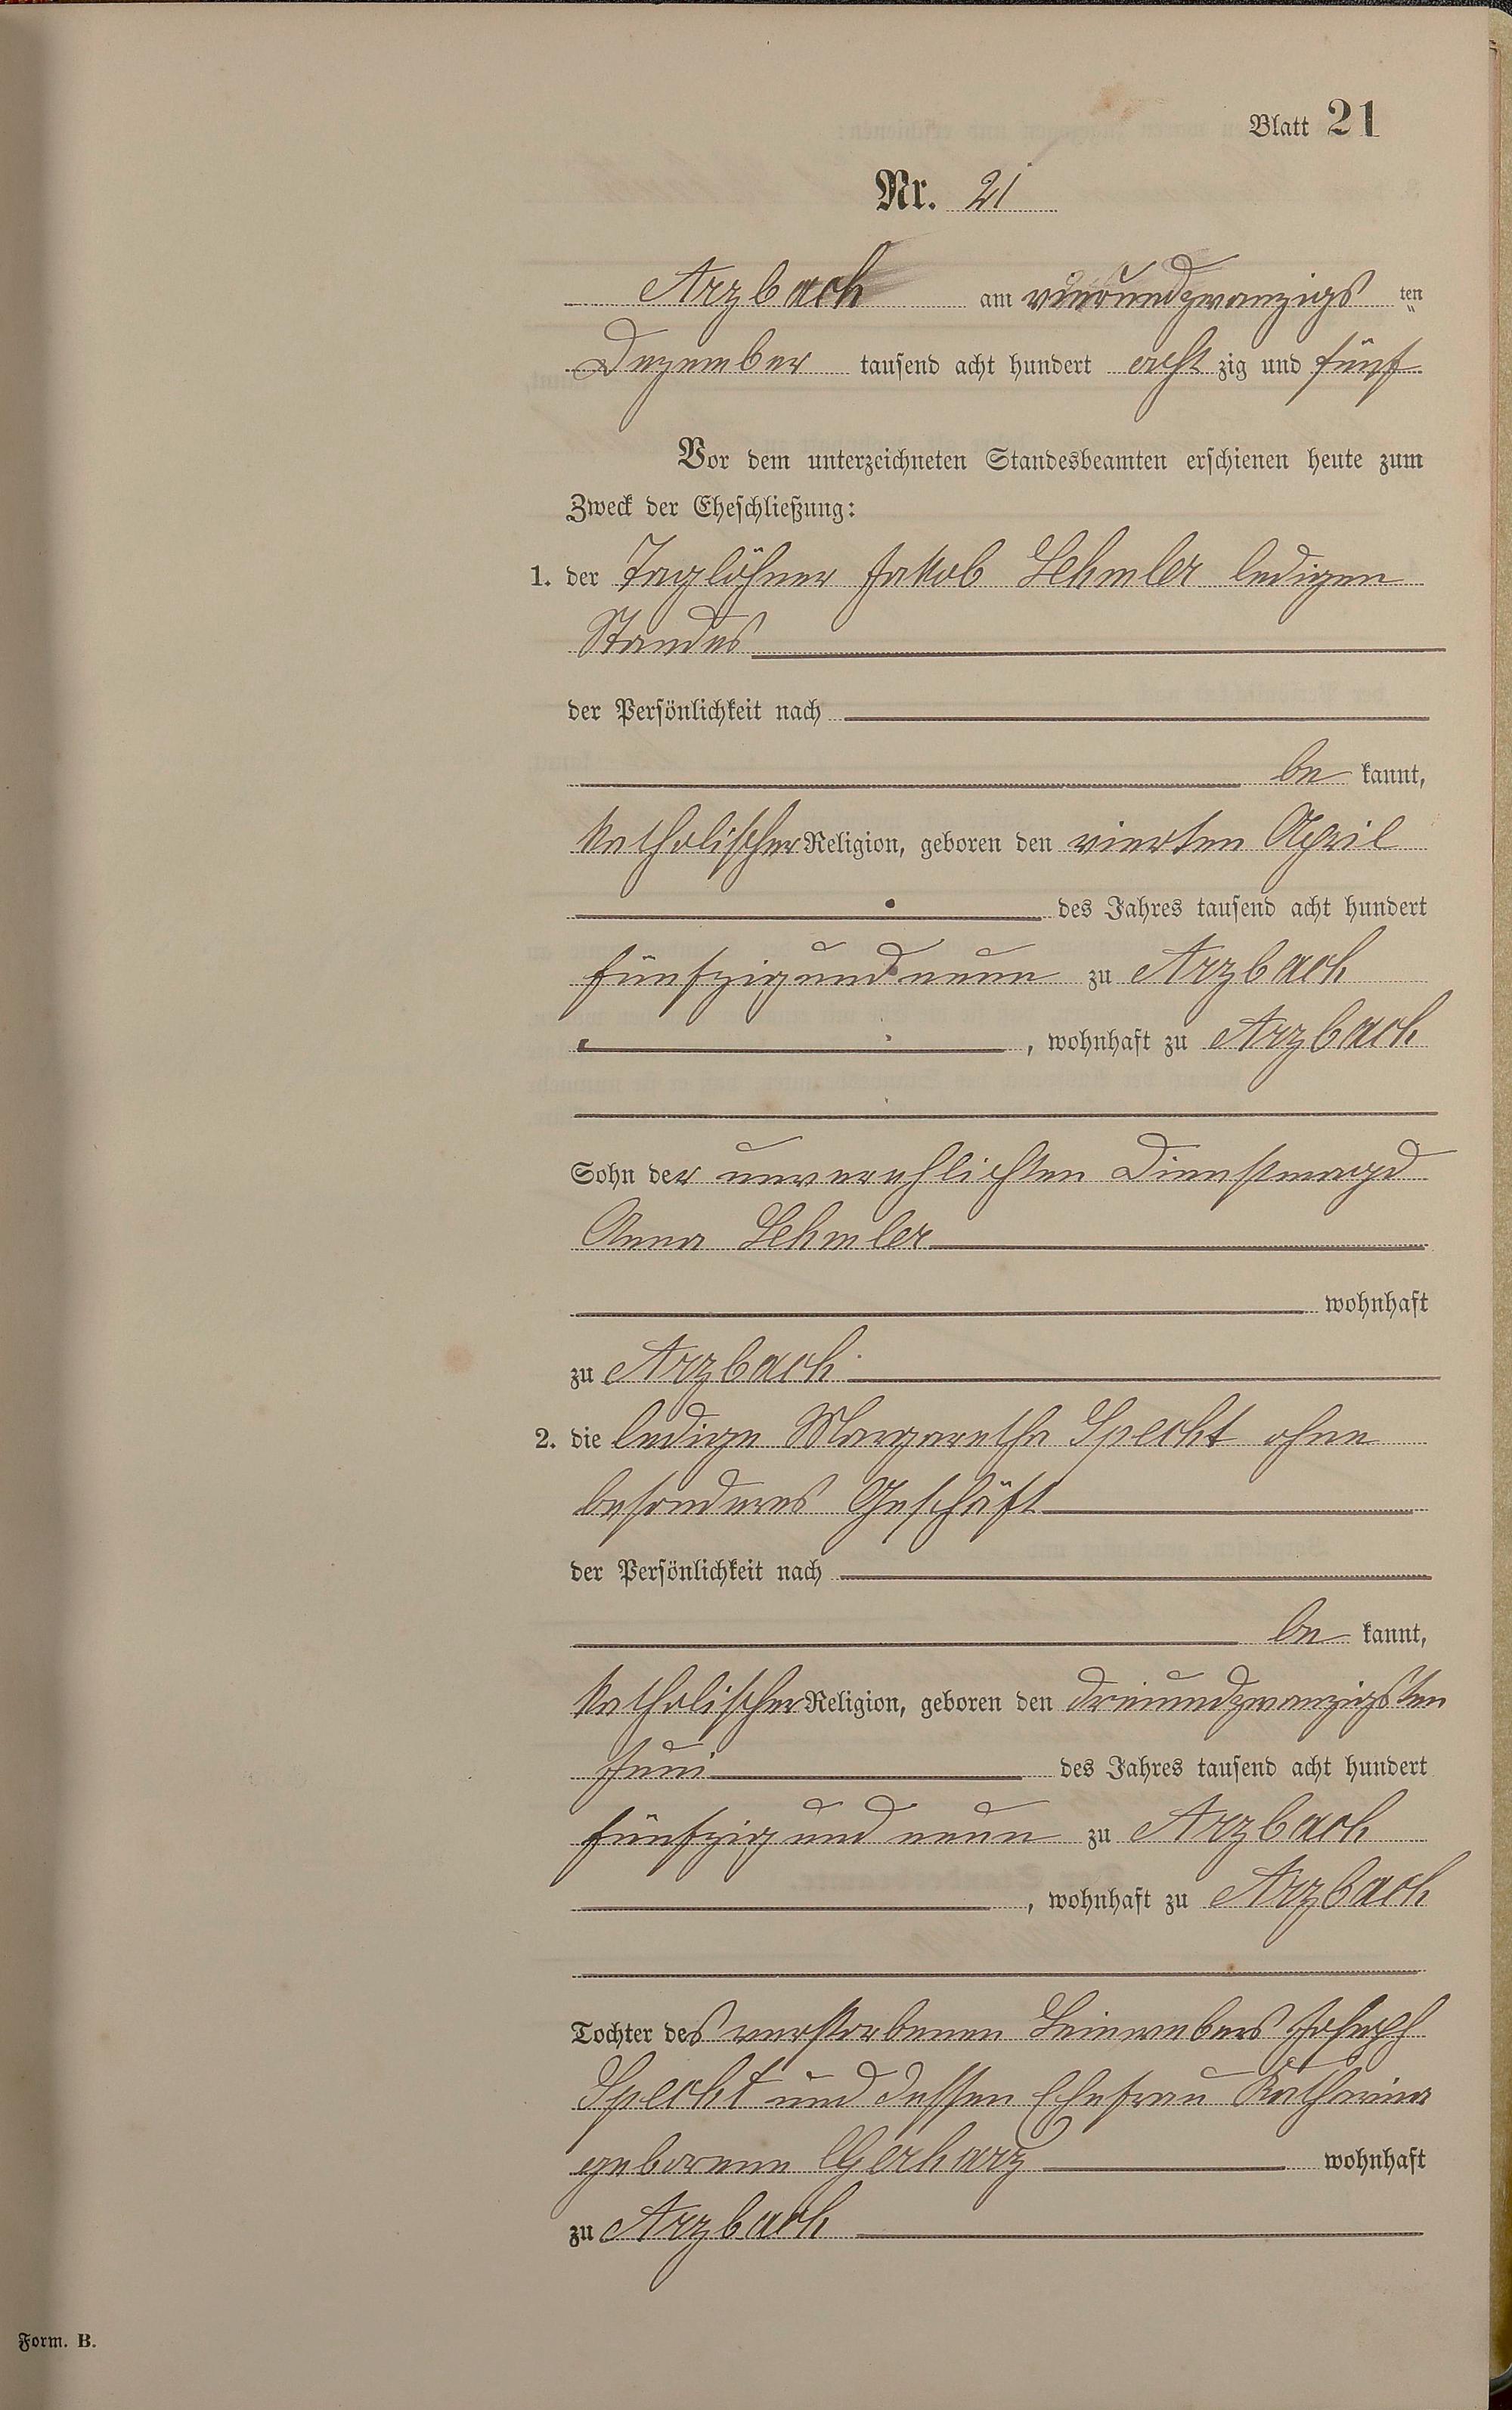 Blatt 21
Nr. 21
Arzbach am vierundzwanzigs ten
Dezember tausend acht hundert acht zig und fünf
Vor dem unterzeichneten Standesbeamten erschienen heute zum
Zweck der Eheschließung:
1. der Taglöhner Jakob Lehmler ledigen
Standes
der Persönlichkeit nach
be kannt,
katholischer Religion, geboren den vierten April
des Jahres tausend acht hundert
fünfzig und neun zu Arzbach
, wohnhaft zu Arzbach
Sohn der unverehlichten Dienstmagd
Anna Lehmler
wohnhaft
zu Arzbach
2. die ledige Margaretha Specht ohne
besonderes Geschäft
der Persönlichkeit nach
be kannt,
katholischer Religion, geboren den dreiundzwanzigsten
Juni des Jahres tausend acht hundert
fünfzig und neun zu Arzbach
, wohnhaft zu Arzbach
Tochter des verstorbenen Leinewebers Joseph
Specht und dessen Ehefrau Katharina
geborene Gerharz wohnhaft
zu Arzbach
Form. B.